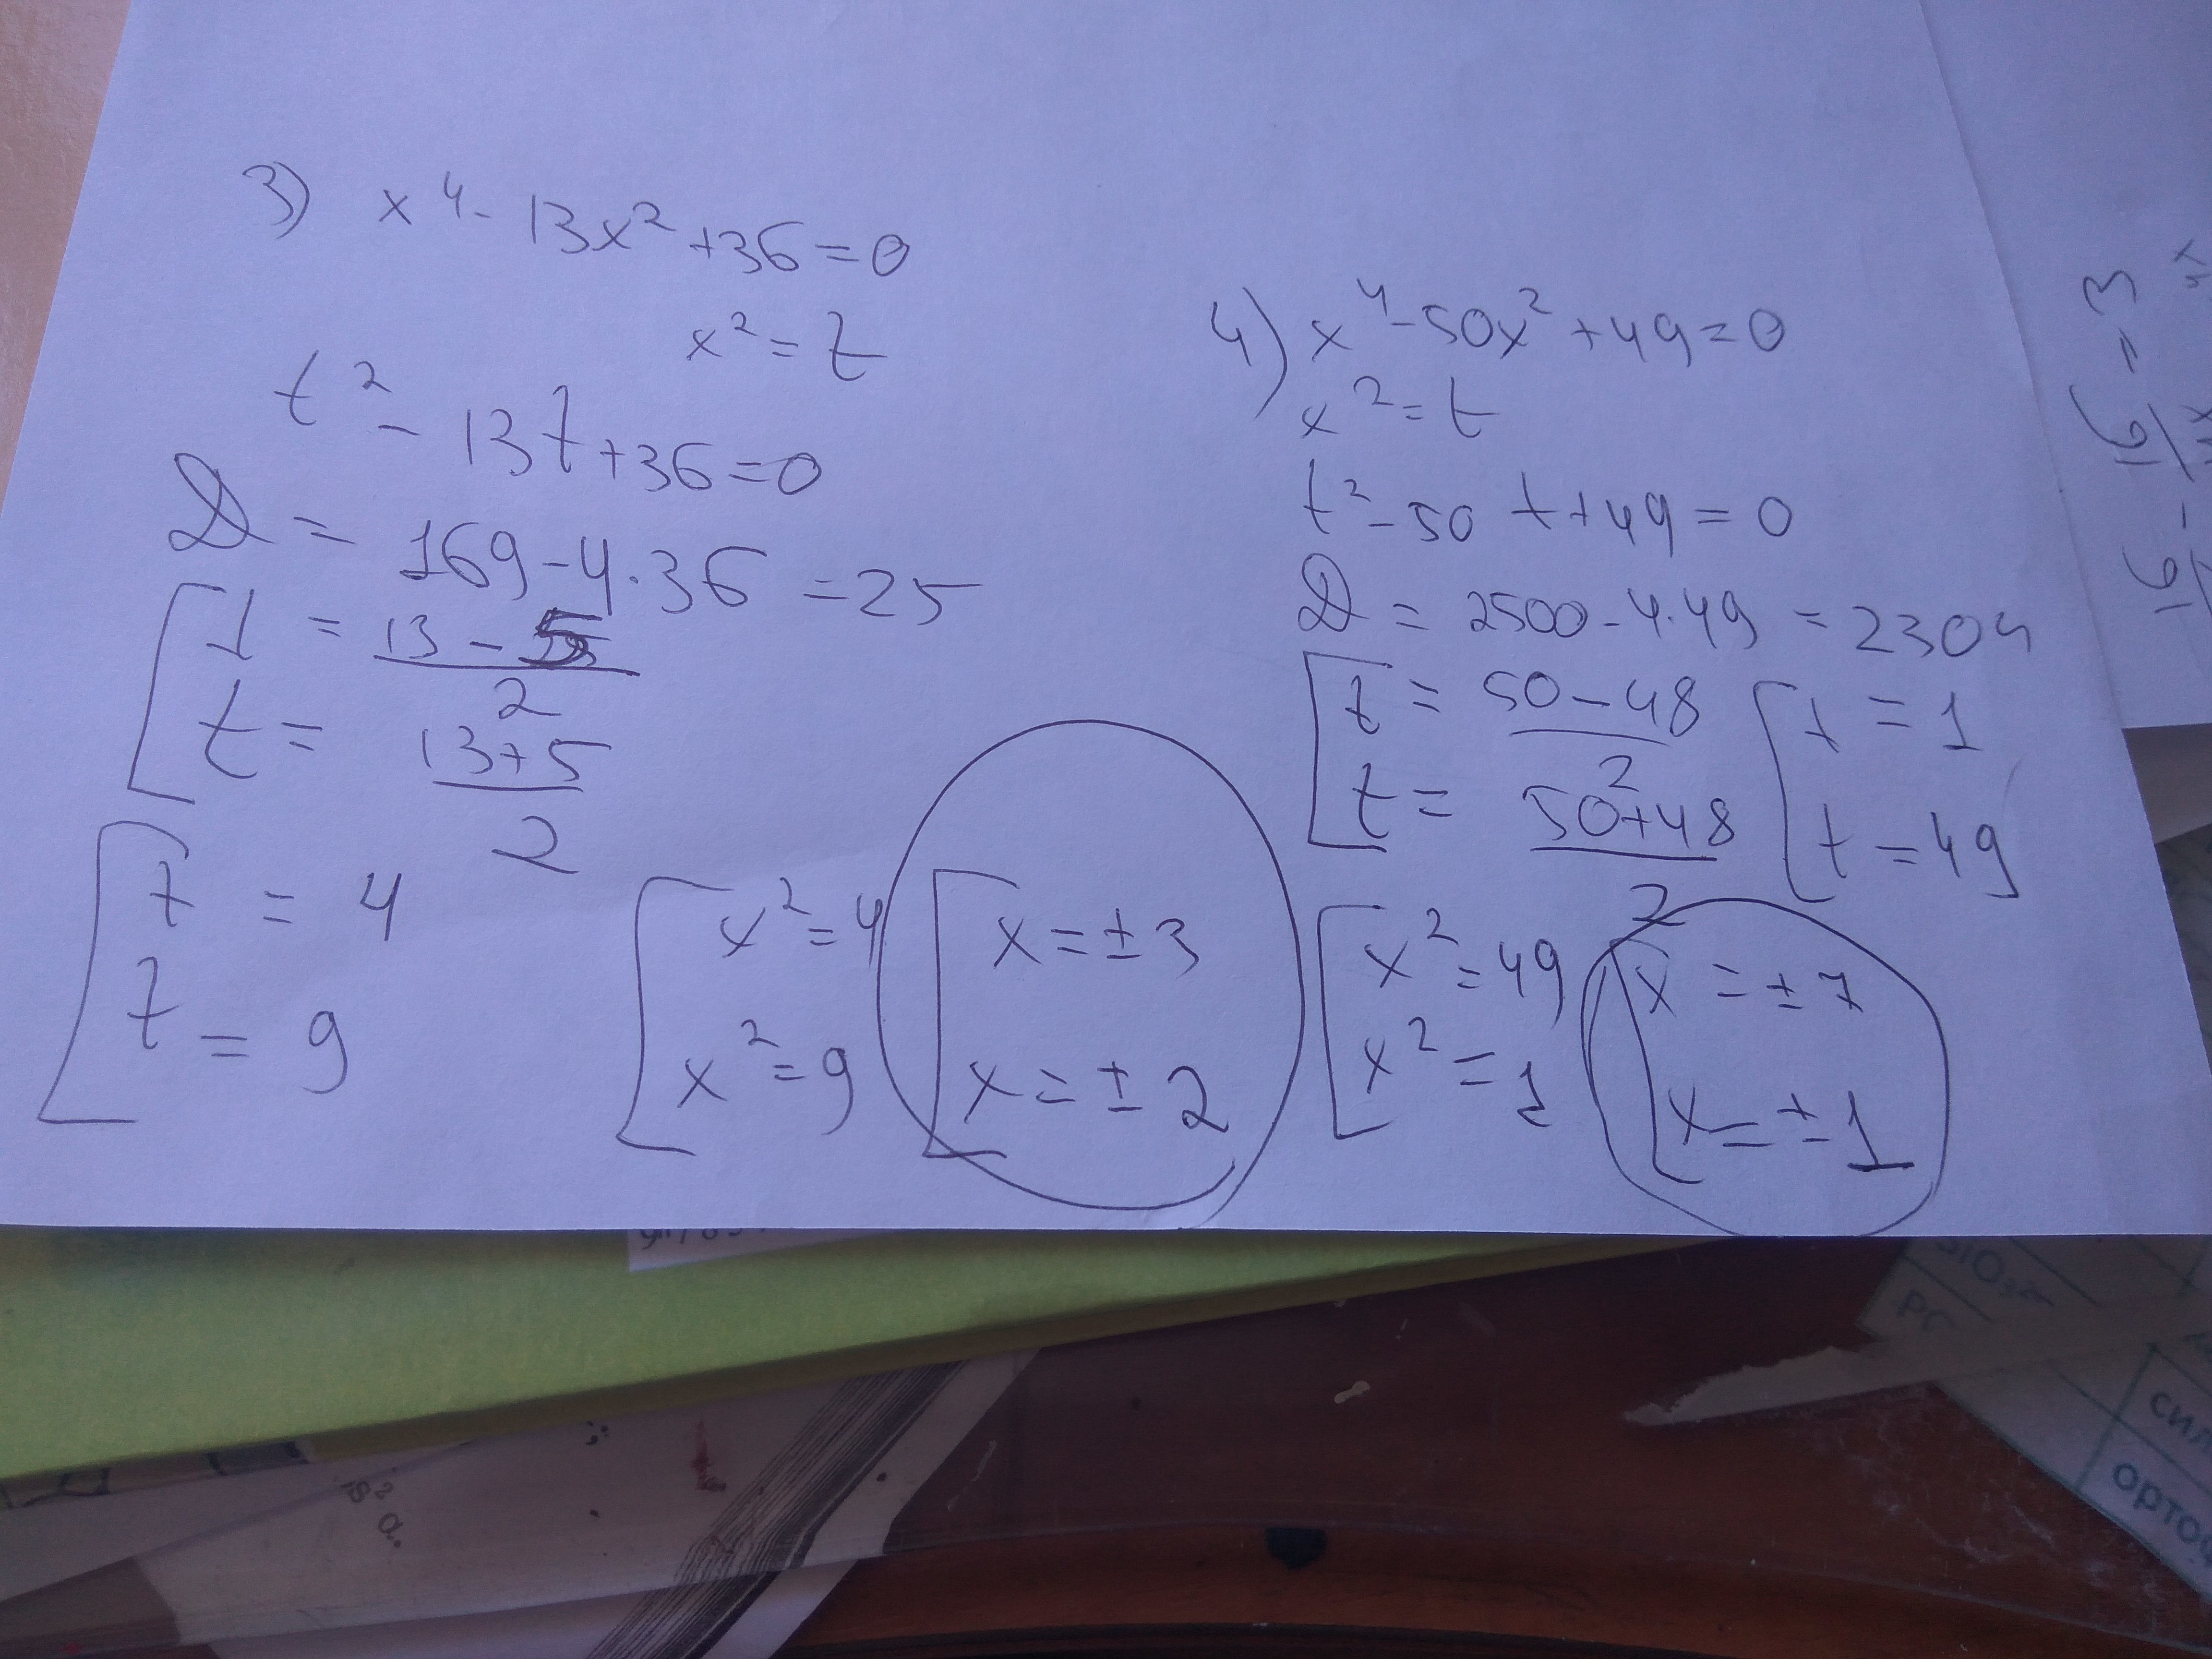 3) x⁴ - 13x² + 36 = 0
x² = t
t² - 13t + 36 = 0
D = 169 - 4·36 = 25
[ t = (13 - 5)/2
t = (13 + 5)/2
[ t = 4
t = 9
[ x² = 4
x² = 9
[ x = ± 3
x = ± 2
4) x⁴ - 50x² + 49 = 0
x² = t
t² - 50 t + 49 = 0
D = 2500 - 4·49 = 2304
[ t = (50 - 48)/2
t = (50 + 48)/2
[ t = 1
t = 49
[ x² = 49
x² = 1
[ x = ± 7
x = ± 1
SiO₃²⁻
сил
орто